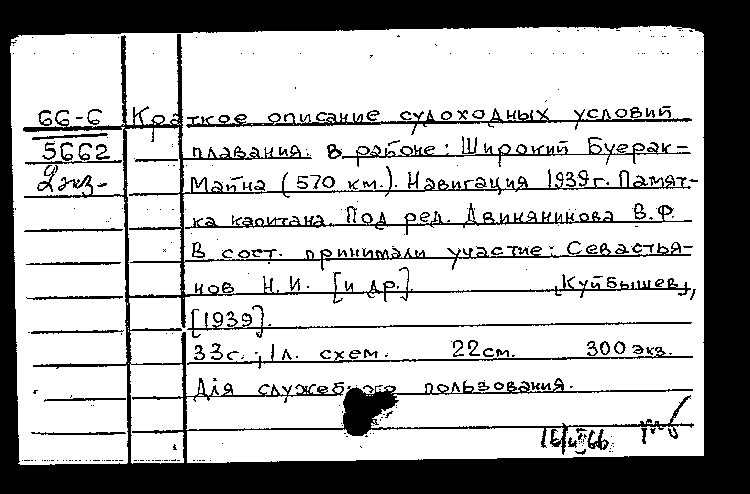 66-6 Краткое описание судоходных условий
5662 плавания. в районе: Широкий Буерак=
2 экз- Майна (570 км.). Навигация 1939г. Памят-
ка капитана. Под ред. Двинянинова В.Ф.
В сост. принимали участие: Севастья-
нов Н.И. [и др.] [Куйбышев],
[1939].
33с.; 1л. схем. 22см. 300 экз.
Для служебного пользования.